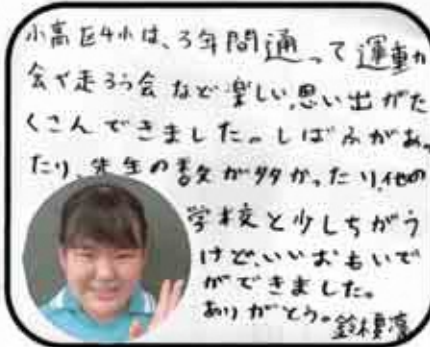 小高区4小は、3年間通って運動
会や走ろう会など楽しい思い出がた
くさんできました。しばふがあっ
たり、先生の数が多かったり、他の
学校と少しちがう
けど、いいおもいで
ができました。
ありがとう。鈴木